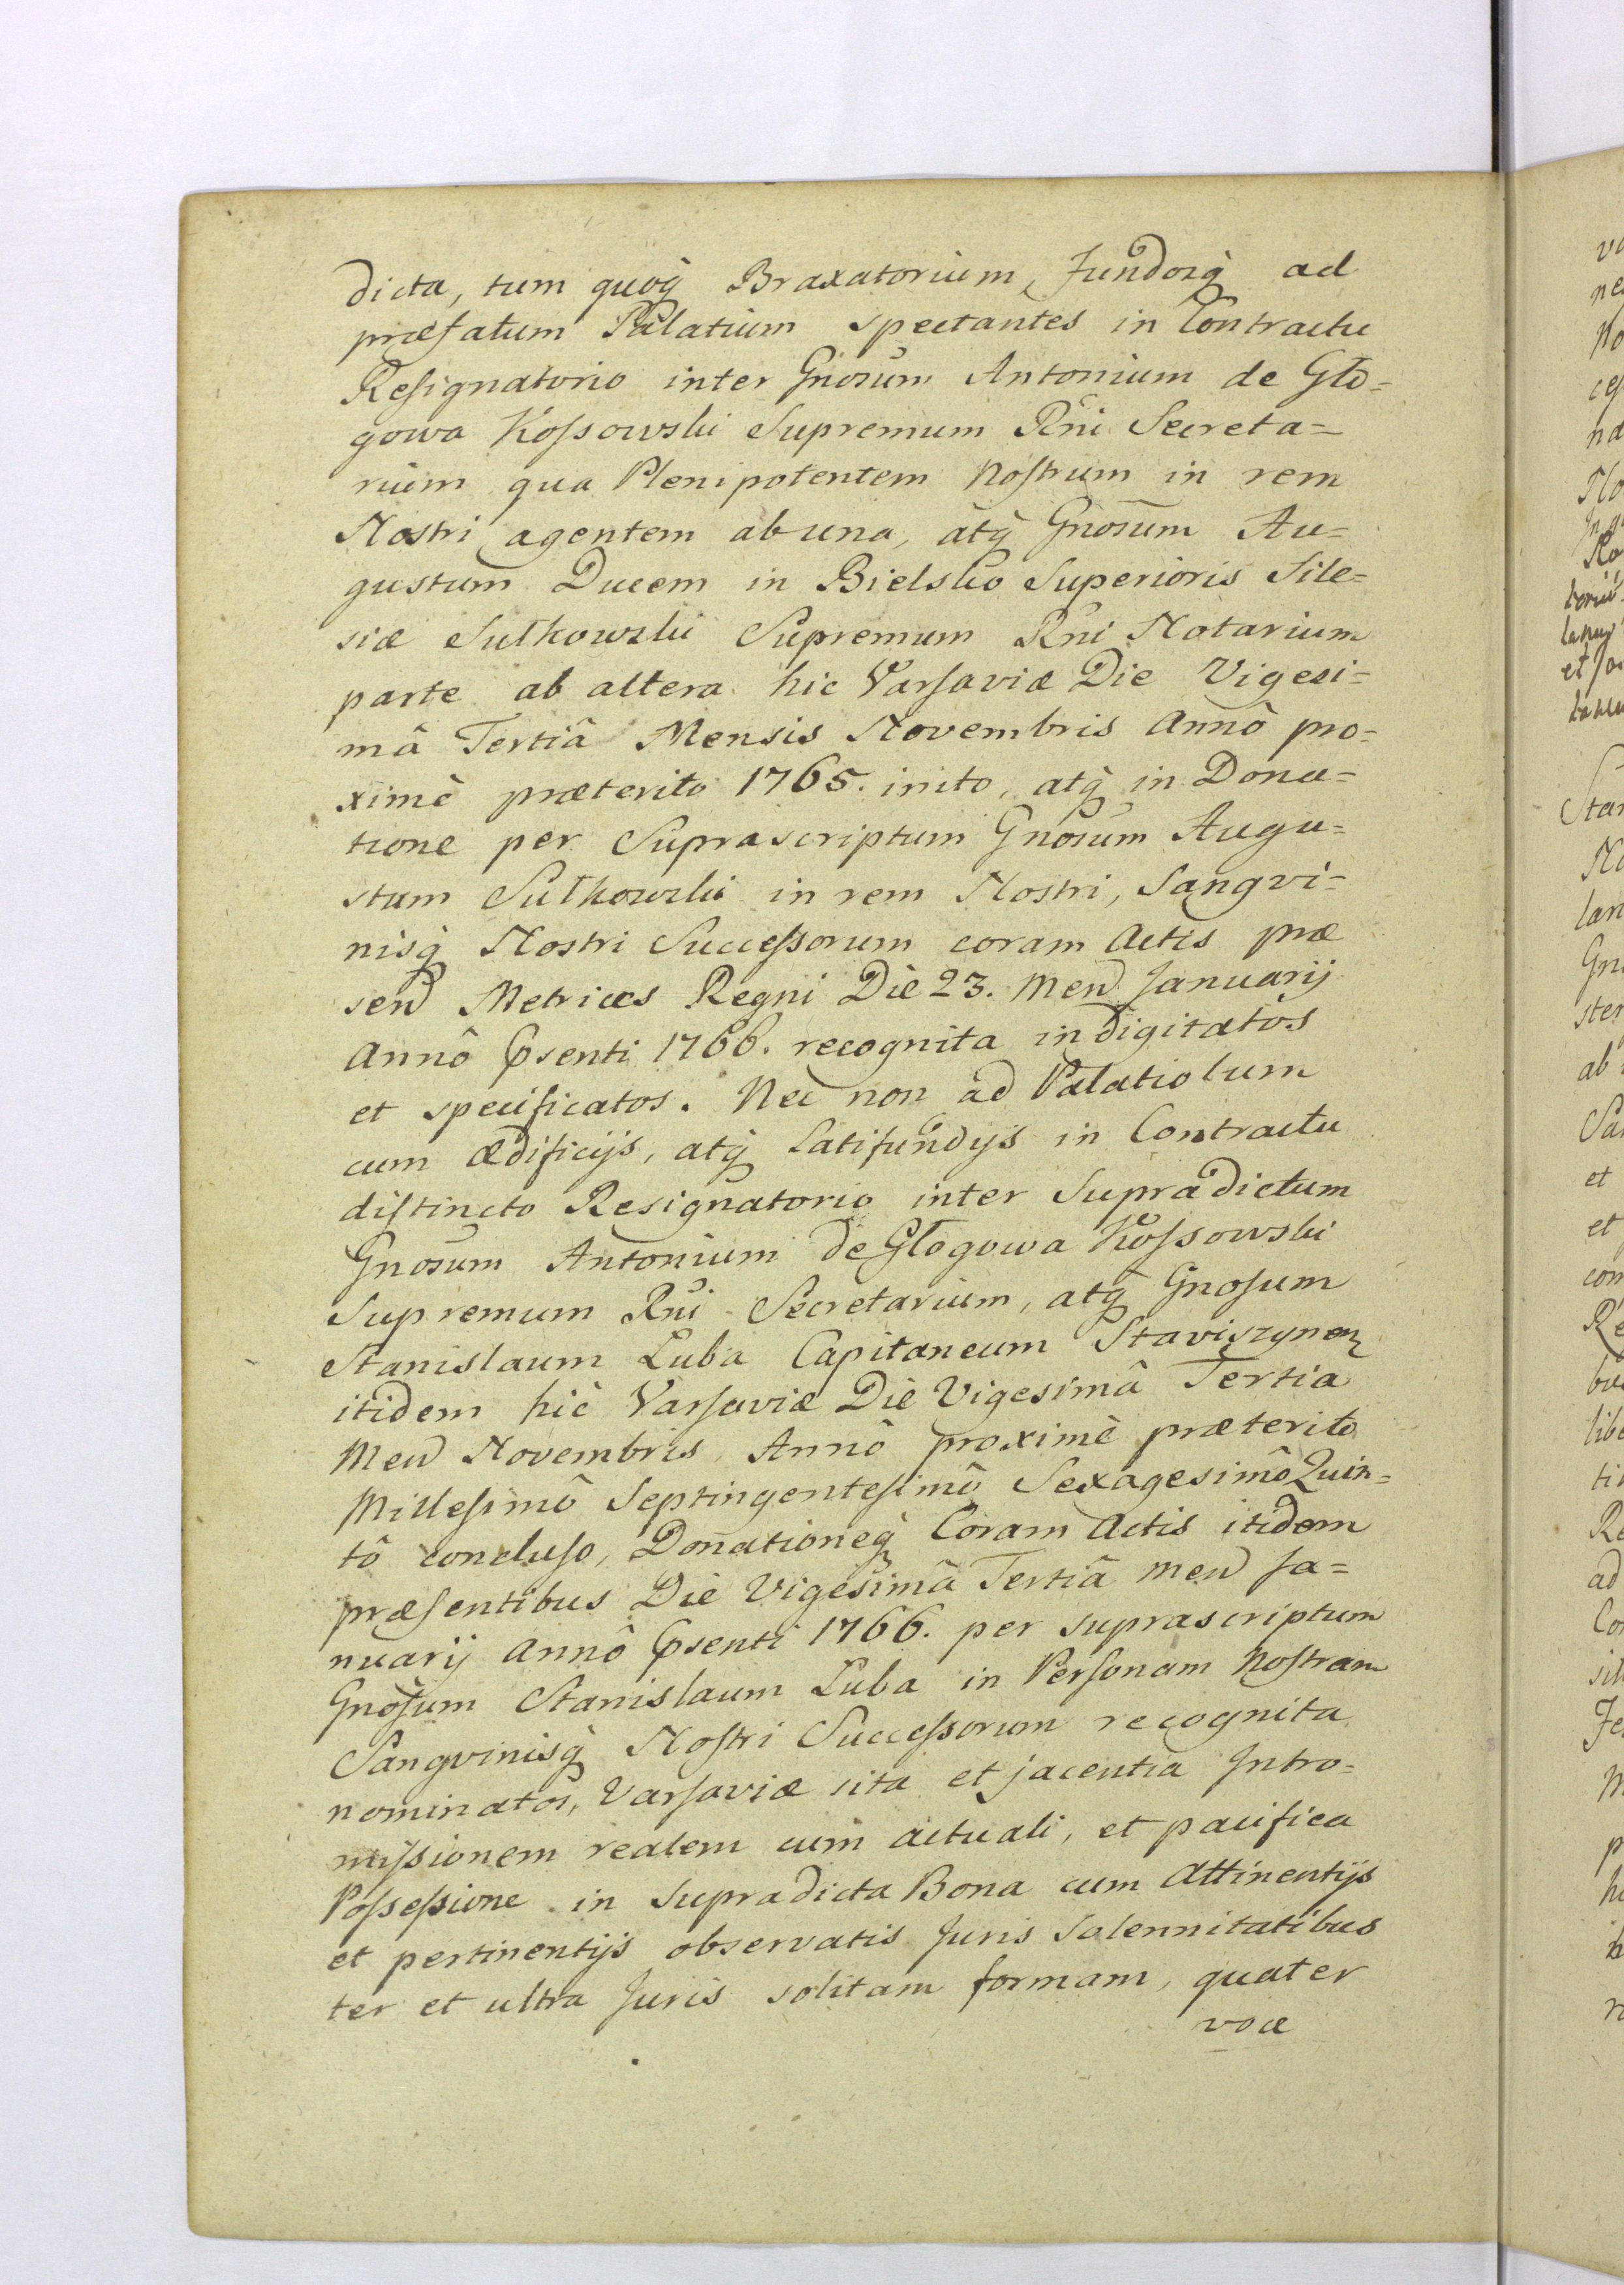 dicta, tum quoq̀ Braxatorium, fundosq̀ ad
præfatum Palatium spectantes in Contractu
Resignatorio inter Gñosum Antonium de Gło=
gowa Kossowski Supremum Rñi Secreta=
rium qua Plenipotentem Nostrum in rem
Nostri agentem ab una, atq̀ Gñosum Au=
gustum Ducem in Bielsko Superioris Sile=
siæ Sułkowski Supremum Rñi Notarium
parte ab altera hic Varsaviæ Die Vigesi=
mâ Tertiâ Mensis Novembris Annô pro=
ximè præterito 1765. inito, atq̀ in Dona=
tione per Suprascriptum Gñosum Augu=
stum Sułkowski in rem Nostri, Sangvi=
nisq̀ Nostri Successorum coram Actis præ
sen Metrices Regni Die 23. Men Januarij
Annô Psenti 1766. recognita indigitatos
et specificatos. Nec non ad Palatiolum
cum ædificijs, atq̀ Latifundijs in Contractu
distincto Resignatorio inter Supradictum
Gnosum Antonium de Głogowa Kossowski
Supremum Rñi Secretarium, atq̀ Gnosum
Stanislaum Łuba Capitaneum Staviszynen
itidem hic Varsaviæ Die Vigesimâ Tertia
Men Novembris Annô proximè præterito
Millesimô Septingentesimô Sexagesimô Quin=
tô concluso, Donationeq̀ Coram Actis itidem
præsentibus Die Vigesimâ Tertiâ Men Ja=
nuarij Annô Psenti 1766. per suprascriptum
Gnosum Stanislaum Łuba in Personam Nostram
Sangvinisq̀ Nostri Successorum recognita
nominatos, Varsaviæ sita et jacentia Intro=
missionem realem cum actuali, et pacifica
Possessione in Supradicta Bona cum Attinentijs
et pertinentijs observatis Juris Solennitatibus
ter et ultra Juris solitam formam, quater
voce